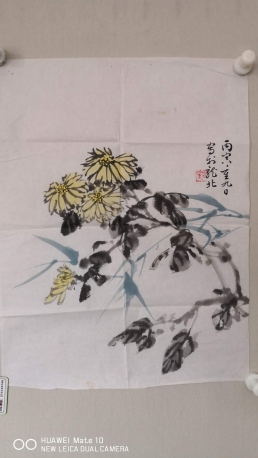 丙寅重九日
写於龍北
HUAWEI Mate 10
NEW LEICA DUAL CAMERA